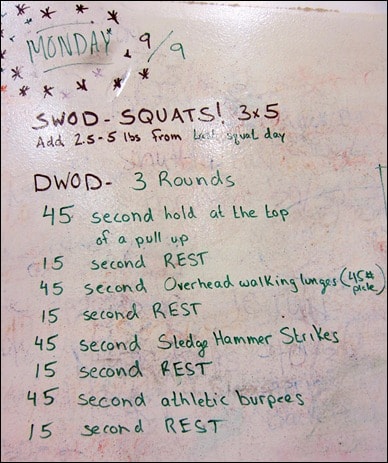 MONDAY 9/9
SWOD - SQUATS! 3x5
Add 2.5-5 lbs from last squat day
DWOD - 3 Rounds
45 second hold at the top
of a pull up
15 second REST
45 second Overhead walking lunges (45# plate)
15 second REST
45 second Sledge Hammer Strikes
15 second REST
45 second athletic burpees
15 second REST